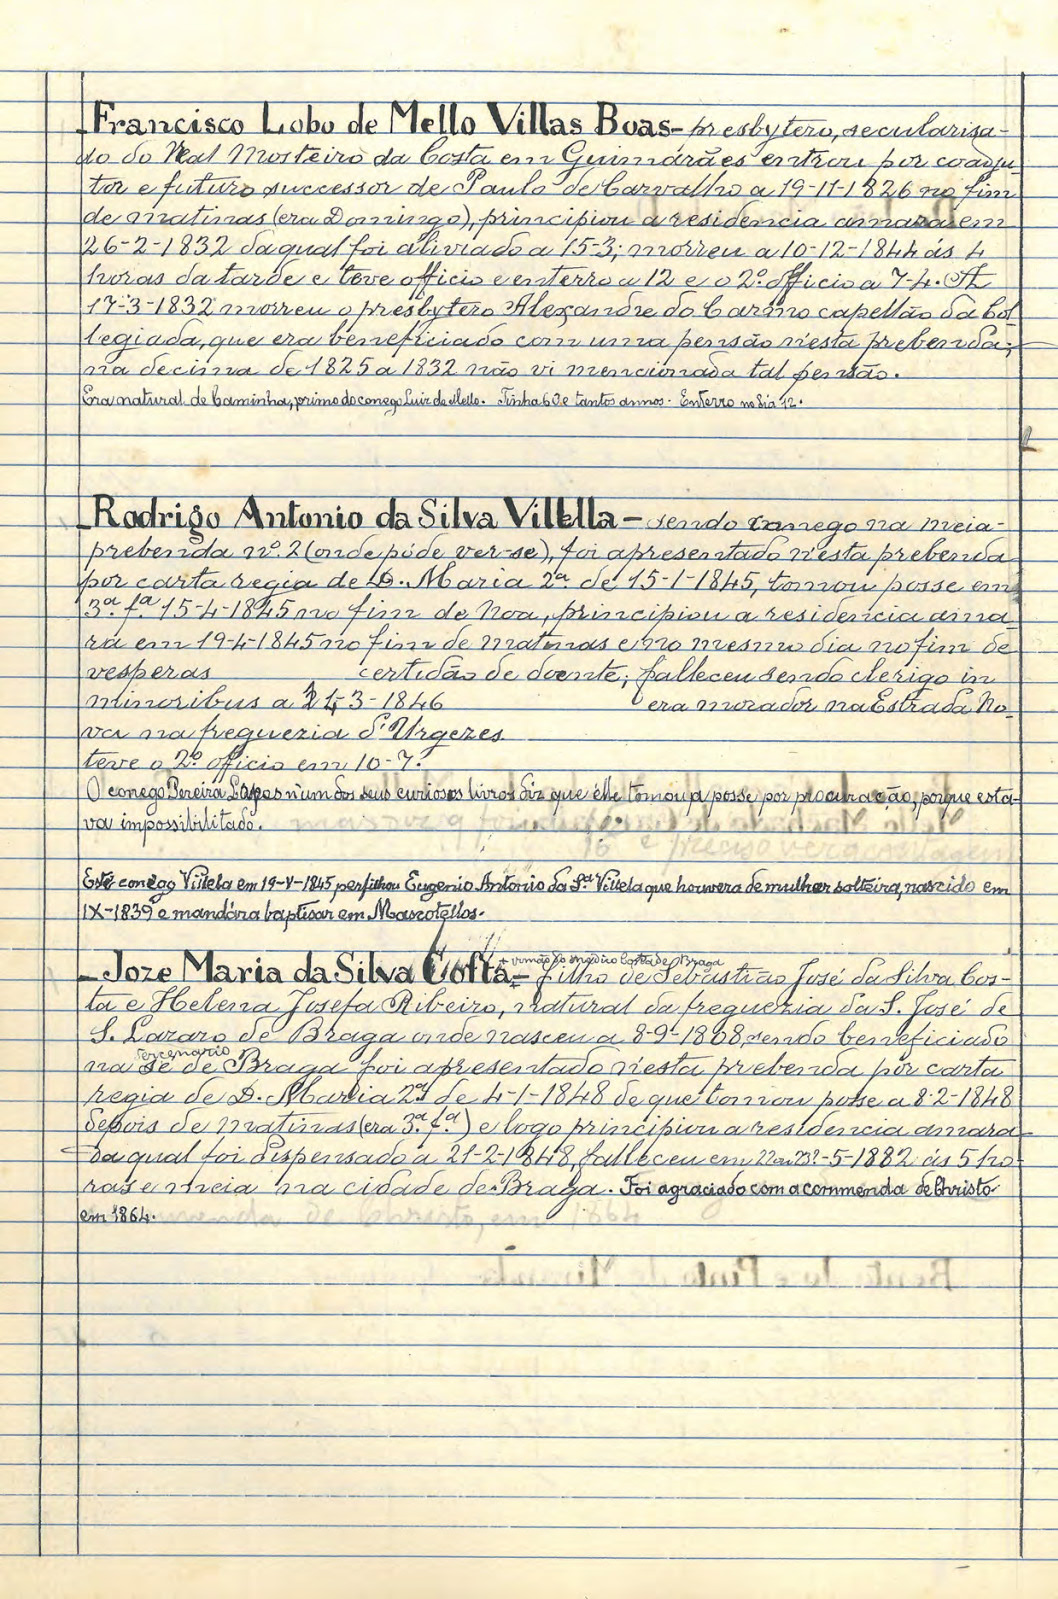 Francisco Lobo de Mello Villas Boas- presbytero, secularisa-
do do Real Mosteiro da Costa em Guimarães entrou por coadju-
tor e futuro successor de Paulo de Carvalho a 19-11-1826 no fim
de matinas (era Domingo), principiou a residencia amara em
26-2-1832 da qual foi aliviado a 15-3; morreu a 10-12-1844 ás 4
horas da tarde e teve officio e enterro a 12 e o 2.º officio a 7-4. A
17-3-1832 morreu o presbytero Alexandre do Carmo capellão da Col
legiada, que era beneficiado com uma pensão n'esta prebenda;
na decima de 1825 a 1832 não vi mencionada tal pensão.
Era natural de Caminha, primo do conego Luiz de Mello. Tinha 60 e tantos annos. Enterro no dia 12.
Rodrigo Antonio da Silva Villella - sendo conego na meia-
prebenda n.º 2 (onde póde ver-se), foi apresentado n'esta prebenda
por carta regia de D. Maria 2.ª de 15-1-1845, tomou posse em
3.ª f.ª 15-4-1845 no fim de Noa, principiou a residencia ama-
ra em 19-4-1845 no fim de matinas e no mesmo dia no fim de
vesperas certidão de doente; falleceu sendo clerigo in
minoribus a -3-1846 era morador na Estrada No-
va na freguezia d'Urgezes
teve o 2.º officio em 10-7.
O conego Pereira Lopes n'um dos seus curiosos livros diz que elle tomou a posse por procuração, porque esta-
va impossibilitado.
Este conego Villela em 19-V-1845 perfilhou Eugenio Antonio da S.ª Villela que houvera de mulher solteira, nascido em
IX-1839 e mandára baptisar em Mascotellos.
+ irmão do medico Costa de Braga
Joze Maria da Silva Costa- filho de Sebastião José da Silva Cos-
ta e Helena Josefa Ribeiro, natural da freguezia da S. José de
S. Lazaro de Braga onde nasceu a 8-9-1808, sendo beneficiado
tercenario
na Sé de Braga foi apresentado n'esta prebenda por carta
regia de D. Maria 2.ª de 4-1-1848 de que tomou posse a 8-2-1848
depois de matinas (era 3.ª f.ª) e logo principiou a residencia amara
da qual foi dispensado a 21-2-1848, falleceu em 22 ou 23?-5-1882 ás 5 ho
ras e meia na cidade de Braga. Foi agraciado com a commenda de Christo
em 1864.